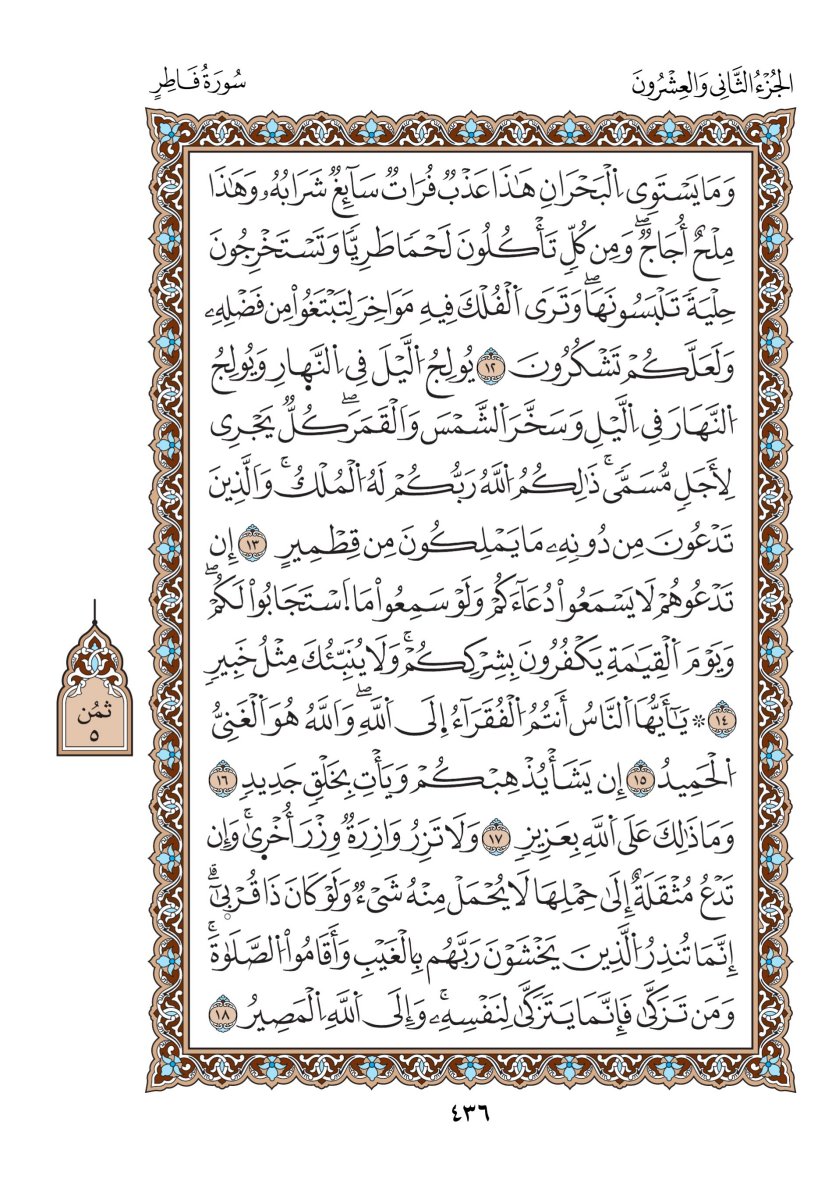 الجُزْءُ الثَّانِي وَالعِشْرُونَ
سُورَةُ فَاطِرٍ
وَمَا يَسْتَوِي اِ۬لْبَحْرَانِ هَٰذَا عَذْبٌ فُرَاتٌ سَآئِغٌ شَرَابُهُۥ وَهَٰذَا
مِلْحٌ أُجَاجٌ ۖ وَمِن كُلّٖ تَأْكُلُونَ لَحْمٗا طَرِيّٗا وَتَسْتَخْرِجُونَ
حِلْيَةٗ تَلْبَسُونَهَا ۖ وَتَرَى اَ۬لْفُلْكَ فِيهِ مَوَاخِرَ لِتَبْتَغُواْ مِن فَضْلِهِۦ
وَلَعَلَّكُمْ تَشْكُرُونَ ١٢ يُولِجُ اُ۬لَّيْلَ فِي اِ۬لنَّهٜارِ وَيُولِجُ
اُ۬لنَّهَارَ فِي اِ۬لَّيْلِ وَسَخَّرَ اَ۬لشَّمْسَ وَالْقَمَرَ ۖ كُلّٞ يَجْرِي
لِأَجَلٖ مُّسَمّٗى ۚ ذَٰلِكُمُ اُ۬للَّهُ رَبُّكُمْ لَهُ اُ۬لْمُلْكُ ۚ وَالَّذِينَ
تَدْعُونَ مِن دُونِهِۦ مَا يَمْلِكُونَ مِن قِطْمِيرٍ ١٣ إِن
تَدْعُوهُمْ لَا يَسْمَعُواْ دُعَآءَكُمْ وَلَوْ سَمِعُواْ مَا اَ۪سْتَجَابُواْ لَكُمْ ۖ
وَيَوْمَ اَ۬لْقِيَٰمَةِ يَكْفُرُونَ بِشِرْكِكُمْ ۚ وَلَا يُنَبِّئُكَ مِثْلُ خَبِيرٖ
١٤ ۞ يَٰٓأَيُّهَا اَ۬لنَّاسُ أَنتُمُ اُ۬لْفُقَرَآءُ إِلَى اَ۬للَّهِ ۖ وَاللَّهُ هُوَ اَ۬لْغَنِيُّ
اُ۬لْحَمِيدُ ١٥ إِن يَشَأْ يُذْهِبْكُمْ وَيَأْتِ بِخَلْقٖ جَدِيدٖ ١٦
وَمَا ذَٰلِكَ عَلَى اَ۬للَّهِ بِعَزِيزٖ ١٧ وَلَا تَزِرُ وَازِرَةٞ وِزْرَ أُخْرٜىٰ ۚ وَإِن
تَدْعُ مُثْقَلَةٌ إِلَىٰ حِمْلِهَا لَا يُحْمَلْ مِنْهُ شَيْءٞ وَلَوْ كَانَ ذَا قُرْبٜىٰٓ ۗ
إِنَّمَا تُنذِرُ اُ۬لَّذِينَ يَخْشَوْنَ رَبَّهُم بِالْغَيْبِ وَأَقَامُواْ اُ۬لصَّلَوٰةَ ۚ
وَمَن تَزَكَّىٰ فَإِنَّمَا يَتَزَكَّىٰ لِنَفْسِهِۦ ۚ وَإِلَى اَ۬للَّهِ اِ۬لْمَصِيرُ ١٨
ثُمُن
٥
٤٣٦